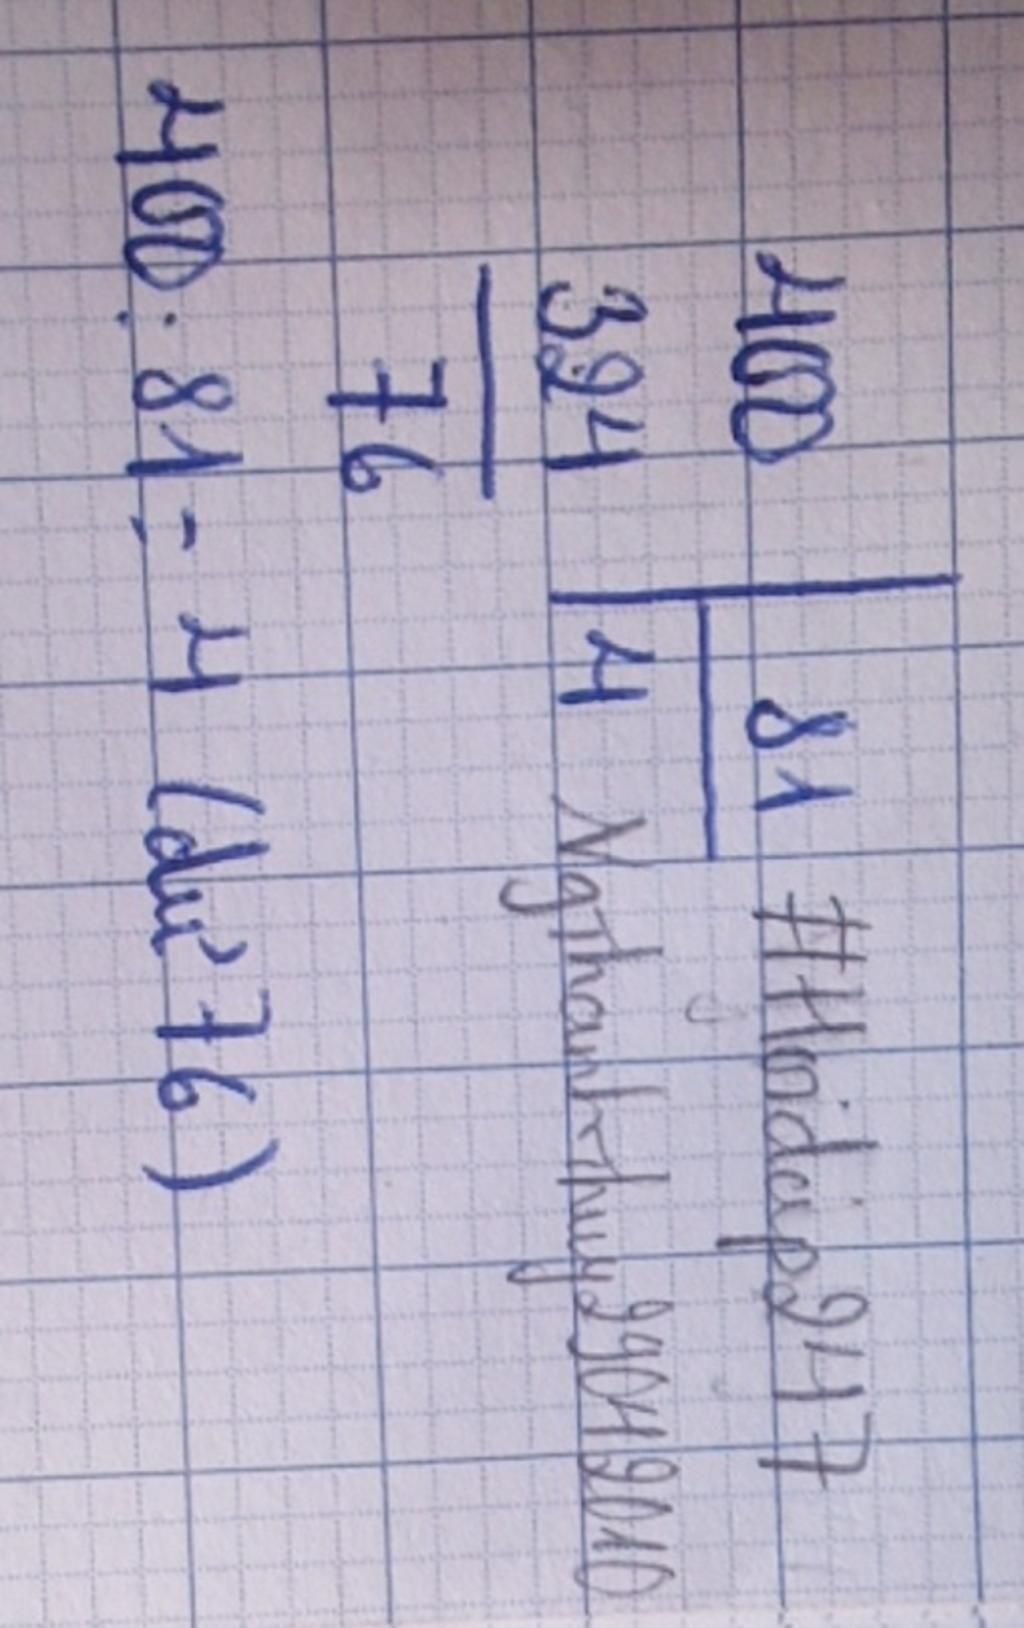 400 81 #Hoidap247
324 4 Ngthanhthuy29042010
76
400 : 81 = 4 (dư 76)